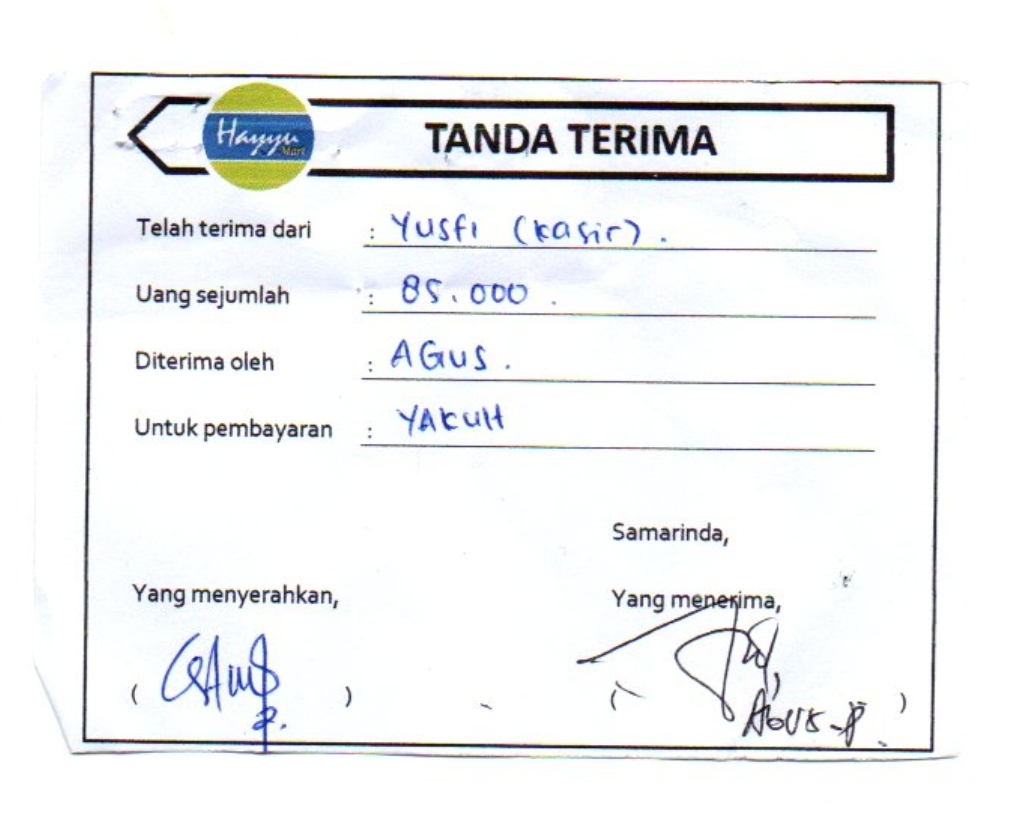 Hayyu
Mart
TANDA TERIMA
Telah terima dari : Yusfi (kasir).
Uang sejumlah : 85.000.
Diterima oleh : AGUS.
Untuk pembayaran : YAKULT
Samarinda,
Yang menyerahkan,
Yang menerima,
( )
( AGUS-P. )